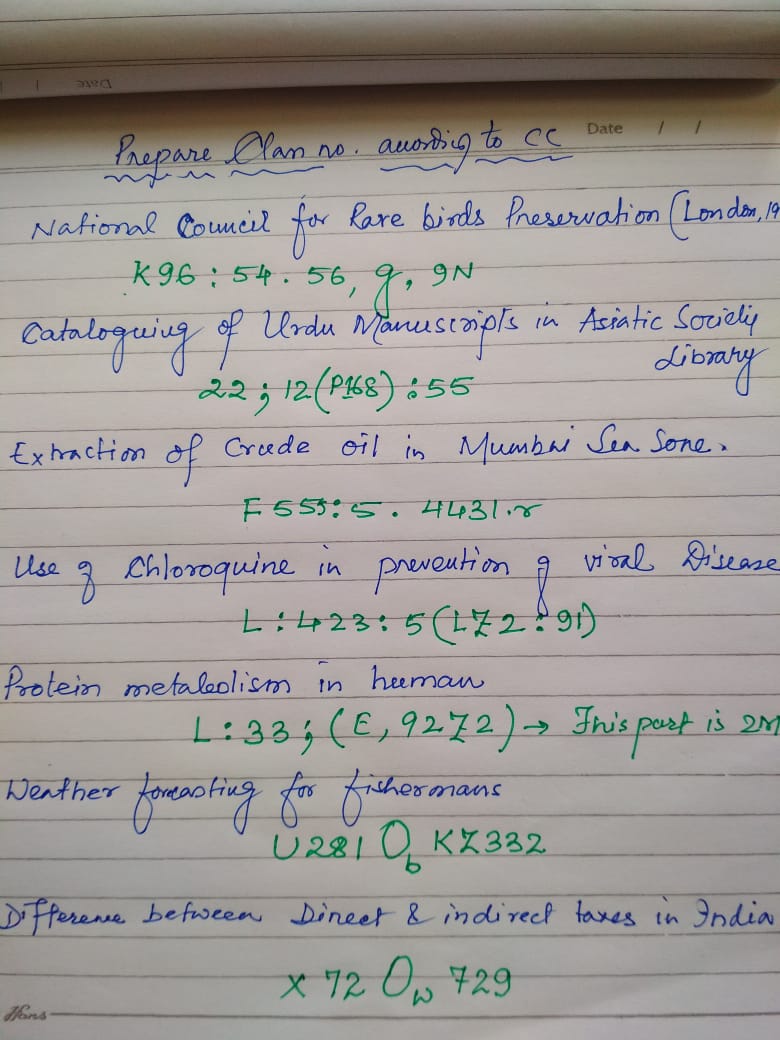 Date / /
Date / /
Prepare Class no. according to CC
National Council for Rare birds Preservation (London, 19
K96 : 54 . 56, g, 9N
Cataloguing of Urdu Manuscripts in Asiatic Society
Library
22 ; 12 (P168) : 55
Extraction of Crude oil in Mumbai Sea Sone.
F 555 : 5 . 4431.r
Use of Chloroquine in prevention of viral Disease
L : 423 : 5 (LZ2 : 91)
Protein metabolism in human
L : 33 ; (E, 9272) → This part is 2M
Weather forcasting for fishermans
U281 0b KZ332
Difference between Direct & indirect taxes in India
X 72 0w 729
Hans